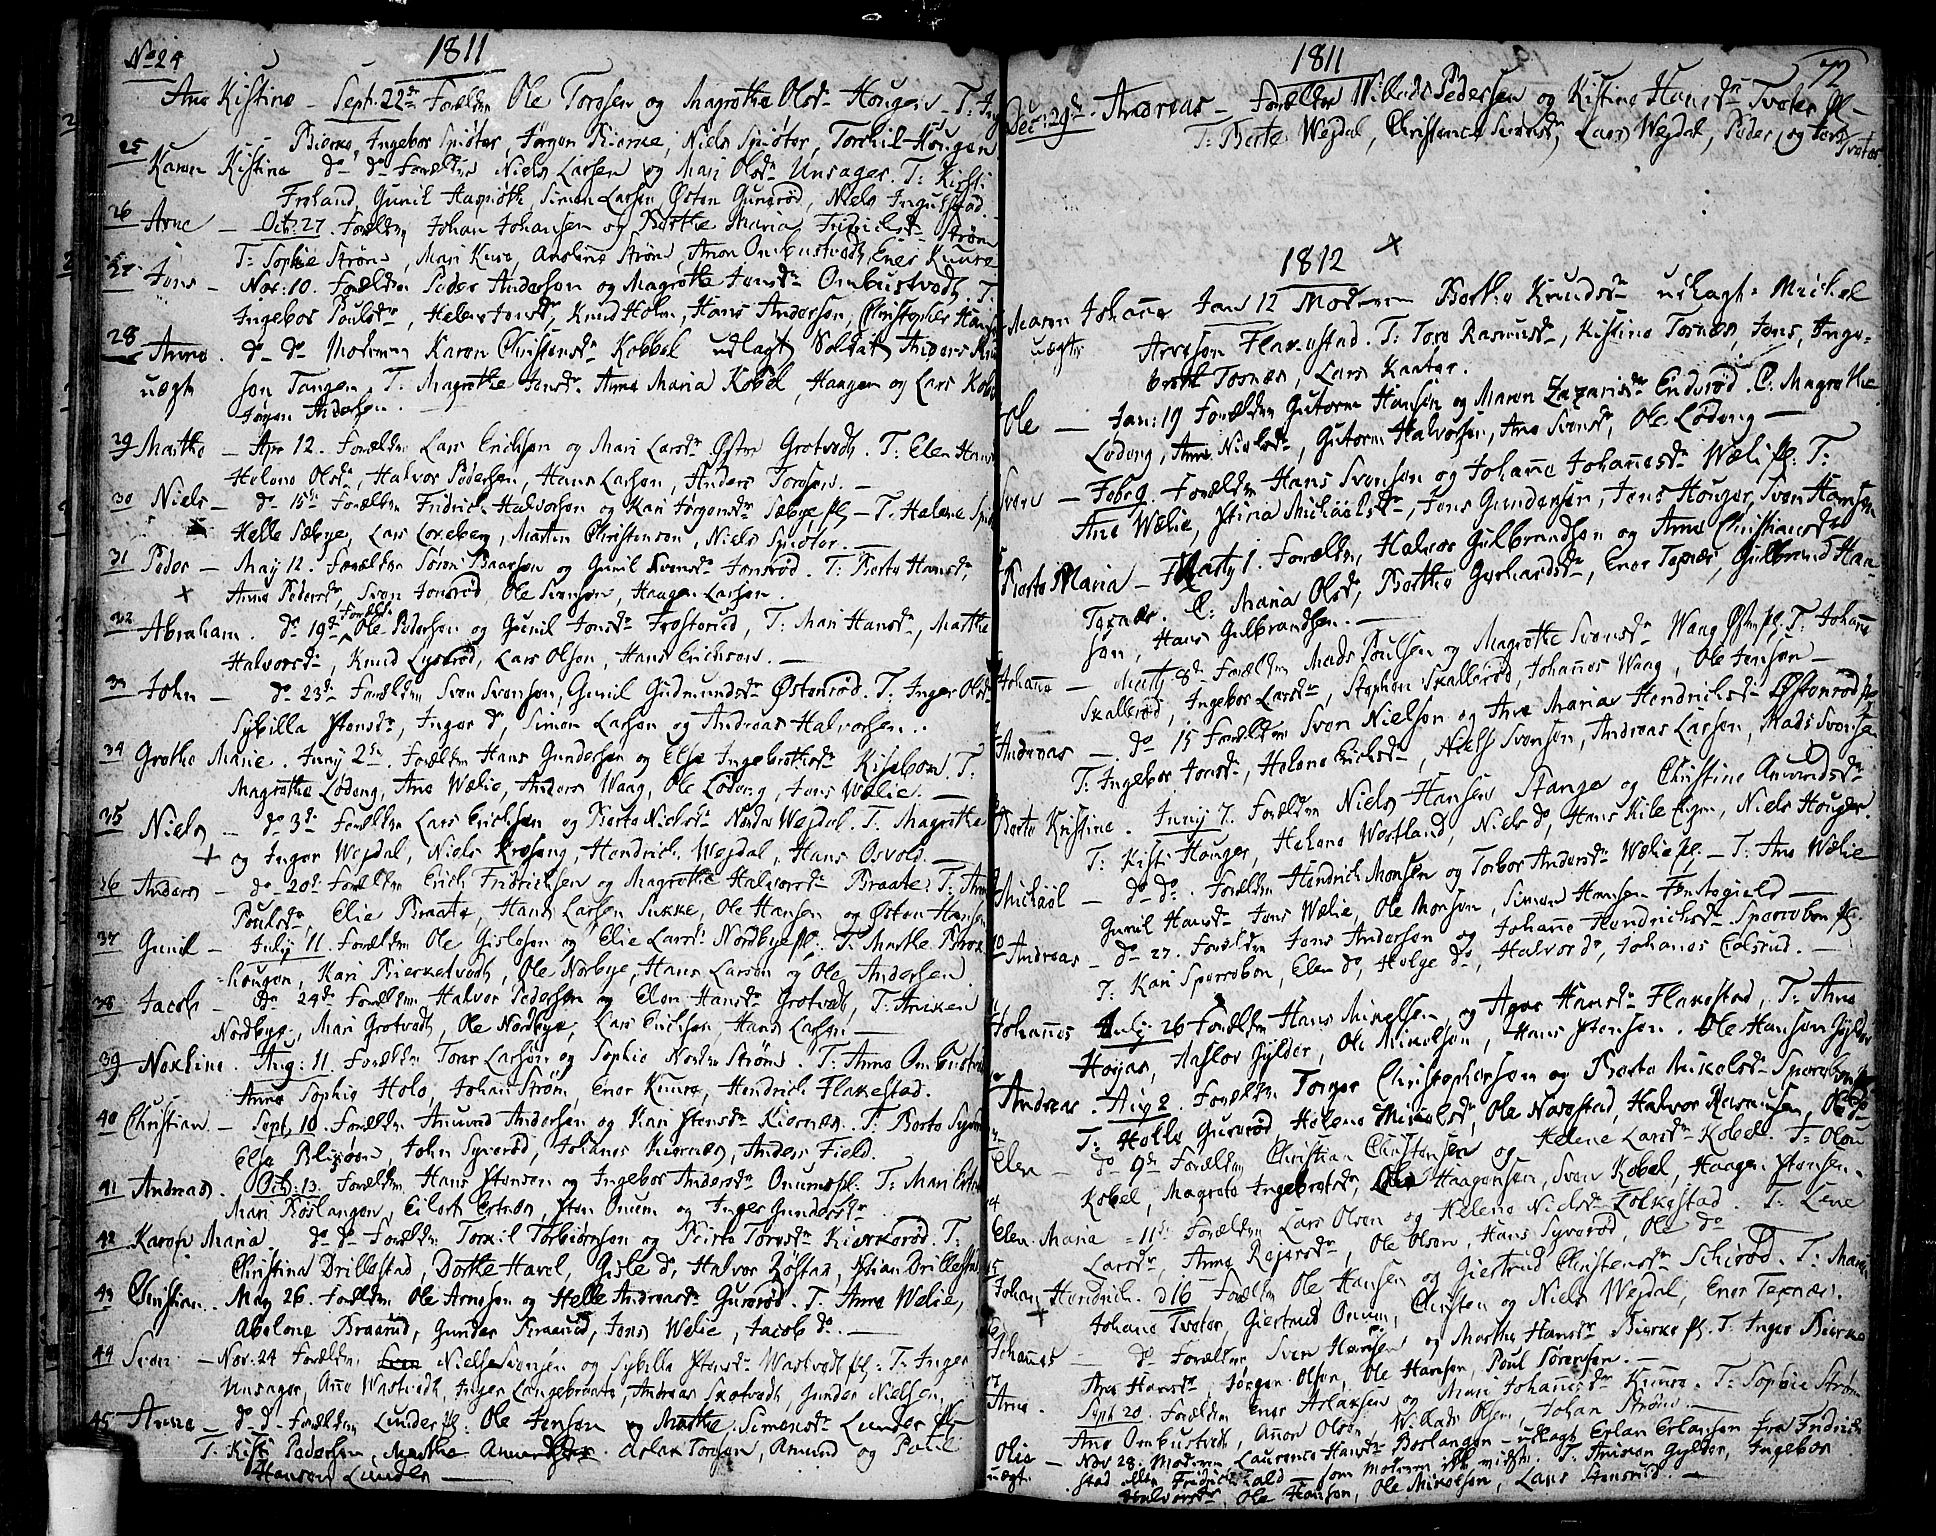 No 24 1811
Ane Kistine – Sept. 22de Forældre Ole Torgsen og Magrethe Olsdr Hougen – T:
Bierke, Ingebor Spiøter, Jørgen Bierke, Niels Spiøter, Torkil Hougen
25 Karen Kistine do do Forældre Niels Larsen og Mari Olsdr Unsager. T: Kisti
Froland, Gunil Simon Larsen, Østen Gunerød, Niels Ingulstad.
26 Arne – Octb: 27. Forældre Johan Johansen og Berthe Maria Fridrichsdr Strøm
T: Sophie Strøm, Mari Kure, Anoline Strøm, Amon Ombustvedt, Ener Kuure
27 Jens – Nov: 10. Forældre Peder Andersen og Magrethe Jensdr Ombustvedt. T.
Ingebor Poulsdr, Helene Jensdr, Knud Holm, Hans Andersen, Christopher
28 Anne. do do Moderen Karen Christensdr Kobbel udlagt Soldat Anders
uægte son Tangen. T. Magrethe Jensdr Anne Maria Kobel, Haagen og Lars Kobel
Jørgen Andersen. –
29 Marthe – Apr 12. Forældre Lars Erichsen og Mari Larsdr Østre Grotvedt. T: Elen
Helene Olsdr, Halvor Pedersen, Hans Larsen, Anders Torgsen. –
30 Niels – do 15de Forældre Fridrich Halvorsen og Kari Jørgensdr Sæbye pl – T. Helene
Helle Sæbye, Lars Loreberg, Martin Christensen, Niels Spiøter. –
31 Peder – May 12. Forældre Søren Baarsen og Gunil Svensdr Jonsrød. T: Berte Hansdr,
x Anne Pedersdr, Sven Jonsrød, Ole Svensen, Haagen Larsen.
32 Abraham. do 19de Forældre Ole Pedersen og Gunil Jonsdr Frosterud, T: Mari Hansdr, Marthe
Halvorsdr, Knud Lyserød, Lars Olsen, Hans Erichsen. –
33 John – do 23de Forældre Sven Svensen, Gunil Gudmundsdr Østenrød. T. Inger Olsdr
Sybilla Stensdr, Inger do, Simon Larsen og Andreas Halvorsen. .
34 Grethe Marie. Juny 2den. Forældre Hans Gundersen og Else Ingebrethsdr Kisebom. T:
Magrethe Lødeng, Ane Wælie, Anders Waag, Ole Lødeng, Jens Wælie. –
35 Niels – do 3de Forældre Lars Erichsen og Berte Nielsdr Nordre Wejdal. T. Magrethe
+ og Inger Wejdal, Niels Kroseng, Hendrich Wejdal, Hans Osvold. –
36 Anders – do 20de. Forældre Erich Fridrichsen og Magrethe Halvorsdr Braate. T. Anne
Poulsdr, Elie Braate, Hans Larsen Sukke, Ole Hansen og Østen Hansen
37 Gunil – July 11. Forældre Ole Gislesen og Elie Larsdr Nordbye pl: T. Marthe
hougen, Kari Bierketvedt, Ole Norbye, Hans Larsen og Ole Andersen
38 Jacob – do 24de Forældre Halvor Pedersen og Elen Hansdr Grotvedt, T: Anniken
Nordbye, Mari Grotvedt, Ole Nordbye, Lars Erichsen, Hans Larsen –
39 Aug: 11. Forældre Torer Larsen og Sophie Nordre Strøm. T: Anne Ombustvedt
Anne Sophie Hole, Johan Strøm, Ener Kuure, Hendrich Flakestad.
40 Christian – Sept 10. Forældre Amund Andersen og Kari Stensdr Kiernæs. T: Berte
Else John Syverød, Johanes Kiernæs, Anders Field.
41 Andreas. Octb: 13. Forældre Hans Stensen og Ingebor Andersdr Onum pl. T: Mari
Mari Røslangen, Eilert Ertnøs, Sten Onum og Inger Gundersdr.
42 Karen Maria do do Forældre Torkil Torbiørnsen og Berte Torersdr Kierkerød. T:
Christina Drillestad, Dorthe Havel, Gisle do, Halvor Røstad, Stian Drillestad
43 Christian. May 26. Forældre Ole Arnesen og Helle Andreasdr Gurerød. T. Anne Welie,
Abelone Braarud, Gunder Braarud, Jens Welie, Jacob do. –
44 Sven – Nov. 24 Forældre Niels Svensen og Sybilla Stensdr Wastvedt pl: T. Inger
Unsager, Ane Wastvedt, Inger Langebraate, Andreas Skotvedt, Gunder Nielsen.
45 Anne – do do Forældre Lunder pl: Ole Jensen og Marthe Simensdr Lunder pl
T: Kisti Pedersen, Marthe Aslak Torgsen, Amund og Poul
Hansen Lunder –
1811 72
Dec: 29de Andreas – Forældre Willads Pedersen og Kistine Hansdr Tveter pl –
T: Berte Wejdal, Christence Svensdr, Lars Wejdal, Peder og Lars Tveter
1812 x
Maren Johanne Jan 12 Moderen Berthe Knudsdr udlagt Michel
uægte Arvesen Flakestad. T: Tore Rasmusdr, Kistine Tornæs, Jens, Inge-
breth Tosnæs, Lars Kanter.
Ole – Jan: 19 Forældre Gutorm Hansen og Maren Zazariasdr Enderød. T: Magrethe
Lødeng, Anne Nielsdr, Gutorm Halvorsen, Ane Svensdr, Ole Lødeng –
Sven – Febr 9. Forældre Hans Svensen og Johanne Johanesdr Wæli pl: T:
Ane Wælie, Stina Michaelsdr, Jens Gundersen, Jens Houger, Sven Hansen
Berte Maria – Marty 1. Forældre Halvor Gulbrandsen og Anne Christiansdr
Texnæs. T: Maria Olsdr, Berthe Gerhardsdr, Ener Texnæs, Gulbrand Han-
sen, Hans Gulbrandsen. –
Johanne – Marty 8de Forældre Mads Poulsen og Magrethe Svensdr Waag Østre pl: T. Johanne
Skallerød, Ingebor Larsdr, Stephen Skallerød, Johannes Waag, Ole Jensen –
Andreas – do 15 Forældre Sven Nielsen og Ane Maria Hendrichsdr Østenrød pl
T: Ingebor Jensdr, Helene Erichsdr, Niels Svensen, Andreas Larsen, Mads Svensen
Berte Kristine. Juny 7. Forældre Niels Hansen Stange og Christine Amundsdr
T: Kisti Houger, Helene Westland, Niels do, Hans Kile Eger, Niels Houger.
Michäel – do do. Forældre Hendrich Monsen og Torber Andersdr Wælie pl. – T: Ane Wælie
Gunil Hansdr Jens Wælie, Ole Monsen, Simen Hansen –
10 Andreas – do 27. Forældre Jens Andersen og Johanne Hendrichsdr Sporrebon pl.
T. Kari Sporrebon, Elen do, Helge do, Halvor do, Johanes Eolsrud. –
Johannes July 26 Forældre Hans Mikelsen og Agne Hansdr Flakestad. T: Ane
Høyas, Aaslov Gylder, Ole Mikelsen, Hans Stensen. Ole Hansen Gylder
Andreas. Aug 2. Forældre Torger Christophersen og Berte Mikelsdr Sporrebon pl
T: Helle Gurerød Helene Mikelsdr, Ole Narestad, Halvor Rasmussen, Ole do
Elen – do 9de Forældre Christian Christensen og Helene Larsdr Kobel. T: Olea
Kobel, Magrete Ingebretsdr, Ole Haagensen, Sven Kobel, Haagen Stensen.
14 Elen Maria – 11de Forældre Lars Olsen og Helene Nielsdr Folkestad. T: Lene
Larsdr, Anne Rejersdr, Ole Olsen, Hans Syverød, Ole do –
15 Johan Hendrich. d 16 Forældre Ole Hansen og Giertrud Christensdr Schirød. T: Maren
+ Johane Tveter, Giertrud Onum, Christen og Niels Wejdal, Ener Texnæs.
Johanes – do Forældre Sven Hansen og Marthe Hansdr Bierke pl. T: Inger Bierke
Ane Hansdr, Jørgen Olsen, Ole Hansen, Poul Sørensen. –
Arne. Sept 20. Forældre Ener Aslaksen og Mari Johanesdr Kuure. T: Sophie Strøm
Ane Ombustvedt, Amon Olsen, Willads Olsen, Johan Strøm. –
Olia – Nov 28. Moderen Laurence Hansdr Boslangen – udlagt Erlan Erlansen fra Fridrich
uægte. stad eller Fridrichshald – som Moderen ikke vidste. T: Aniken Gylder, Ingebor
Halvorsdr, Ole Hansen, Ole Mikelsen, Lars Stensrud. –